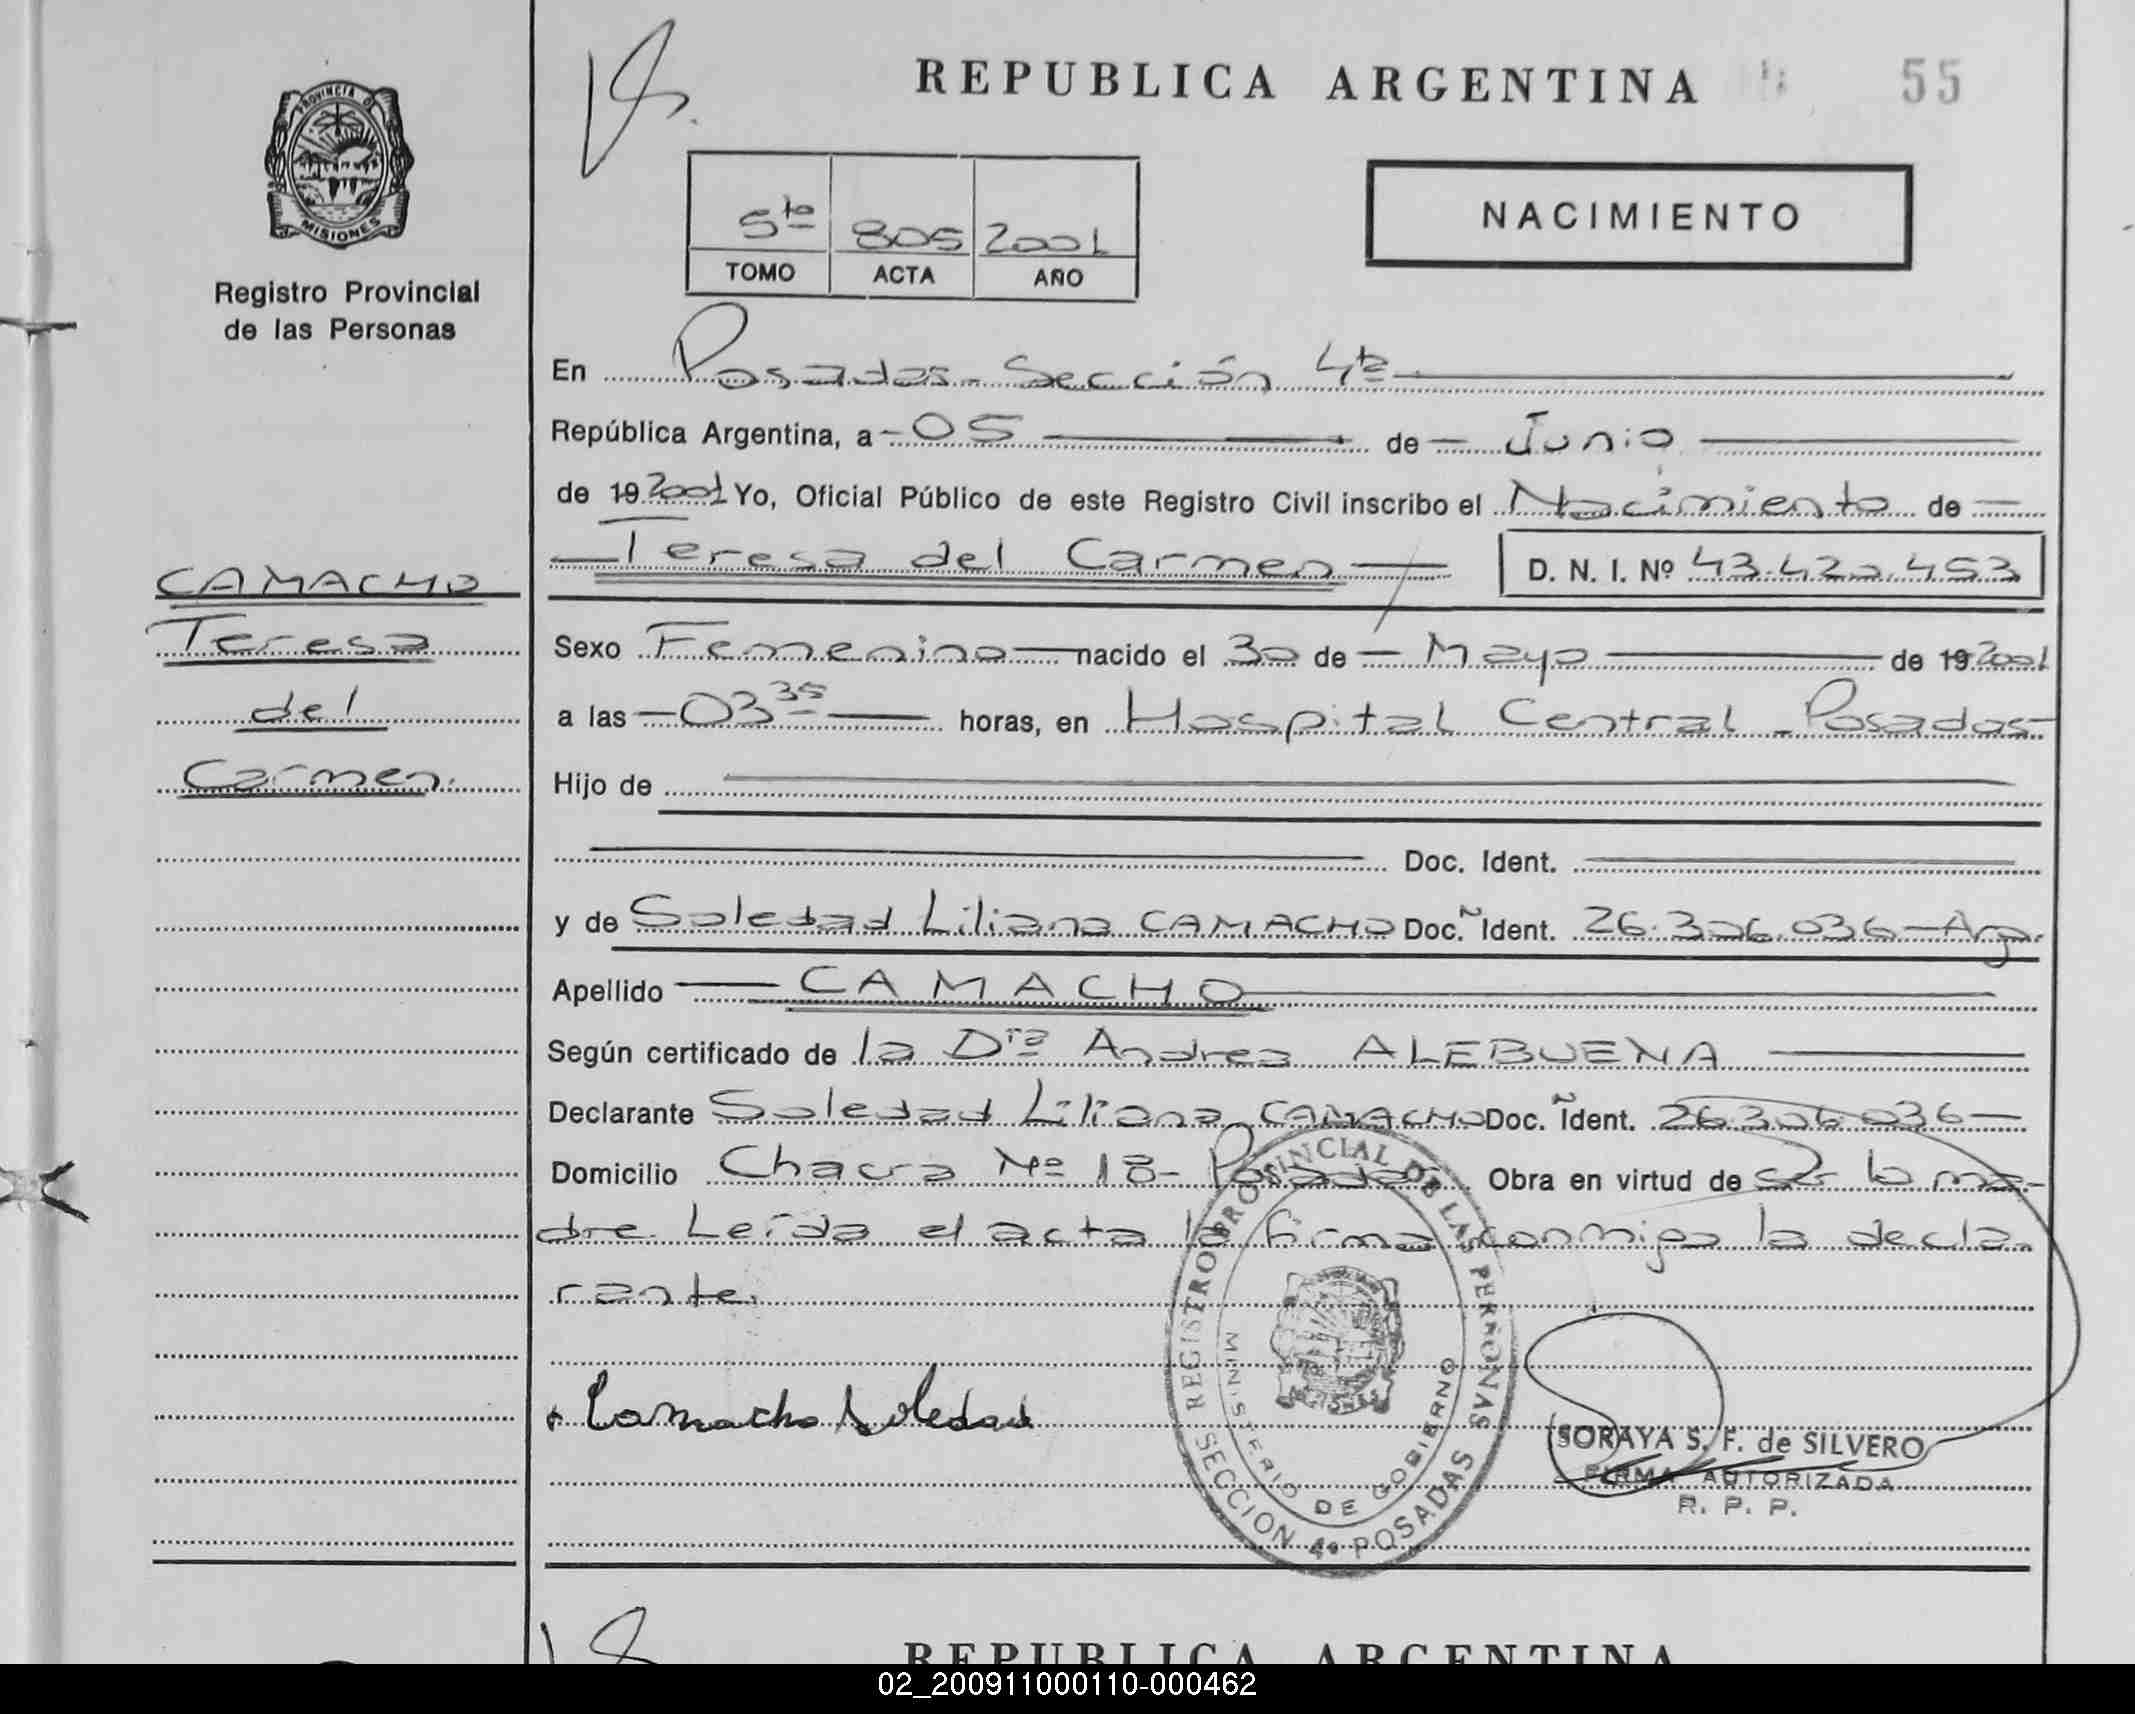 REPUBLICA ARGENTINA
55
PROVINCIA DE MISIONES
Registro Provincial
de las Personas
5to 805 2001
TOMO ACTA AÑO
NACIMIENTO
En Posadas - Sección 4ta
República Argentina, a - 05 de - Junio
de 19 2001 Yo, Oficial Público de este Registro Civil inscribo el Nacimiento de -
Teresa del Carmen D. N. I. Nº 43.420.453
CAMACHO
Teresa
del
Carmen.
Sexo Femenino nacido el 30 de - Mayo de 19 2001
a las - 03 35 horas, en Hospital Central - Posadas -
Hijo de
Doc. Ident.
y de Soledad Liliana CAMACHO Doc. Ident. 26.306.036 - Arg.
Apellido CAMACHO
Según certificado de la Dra Andrea ALEBUENA
Declarante Soledad Liliana CAMACHO Doc. Ident. 26.306.036 -
Domicilio Chacra Nº 18 - Posadas Obra en virtud de ser la ma-
dre. Leída el acta la firma conmigo la decla-
rante.
Camacho Soledad
REGISTRO PROVINCIAL DE LAS PERSONAS
MINISTERIO DE GOBIERNO
SECCION 4ª POSADAS
SORAYA S. F. de SILVERO
FIRMA AUTORIZADA
R. P. P.
REPUBLICA ARGENTINA
02_200911000110-000462